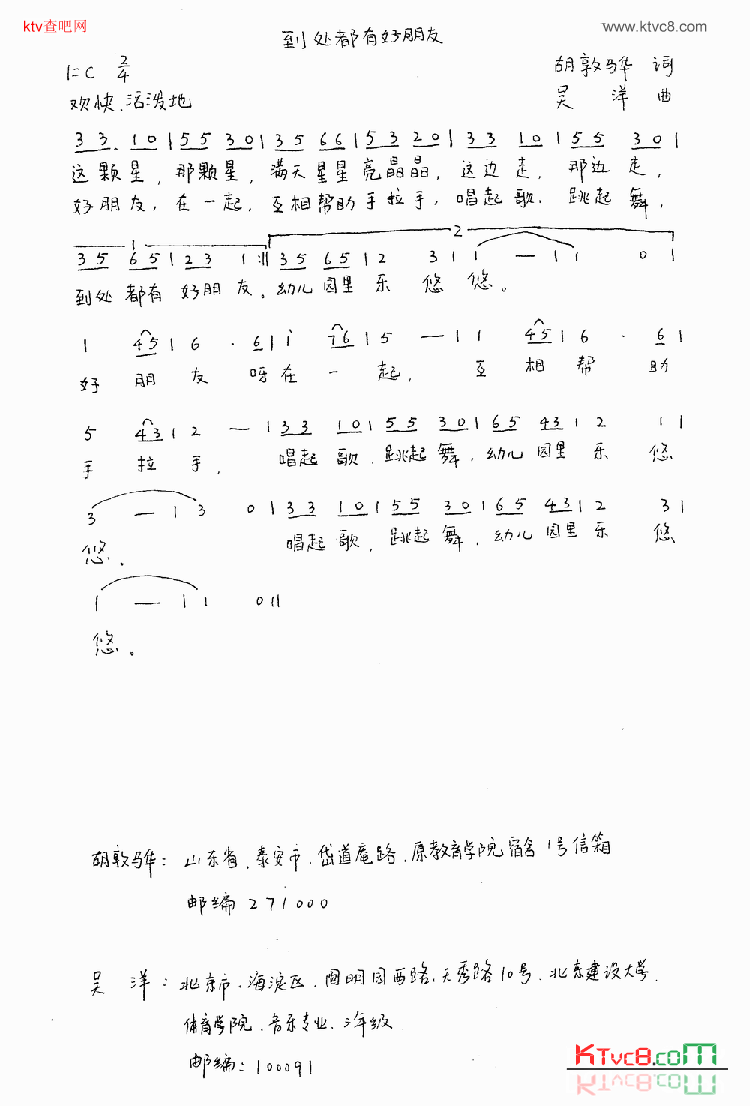 ktv查吧网
www.ktvc8.com
到处都有好朋友
1=C 2/4
胡敦骅 词
欢快、活泼地
吴 洋 曲
3 3. 1 0 | 5 5 3 0 | 3 5 6 6 | 5 3 2 0 | 3 3 1 0 | 5 5 3 0 |
这颗星，那颗星，满天星星亮晶晶，这边走，那边走，
好朋友，在一起，互相帮助手拉手，唱起歌，跳起舞，
1
2
3 5 6 5 | 2 3 1 :|| 3 5 6 5 | 2 3 | 1 — | 1 0 |
到处都有好朋友。幼儿园里乐悠悠。
1 4 5 | 6 · 6 | i 7 6 | 5 — | 1 4 5 | 6 · 6 |
好朋友呀在一起，互相帮助
5 4 3 | 2 — | 3 3 1 0 | 5 5 3 0 | 6 5 4 3 | 2 1 |
手拉手，唱起歌，跳起舞，幼儿园里乐悠
3 — | 3 0 | 3 3 1 0 | 5 5 3 0 | 6 5 4 3 | 2 3 |
悠。唱起歌，跳起舞，幼儿园里乐悠
1 — | 1 0 ||
悠。
胡敦骅：山东省、泰安市、岱道庵路、原教育学院宿舍1号信箱
邮编 271000
吴 洋：北京市、海淀区、圆明园西路、天秀路10号、北京建设大学、
体育学院、音乐专业、三年级
邮编：100091
KTvc8.com